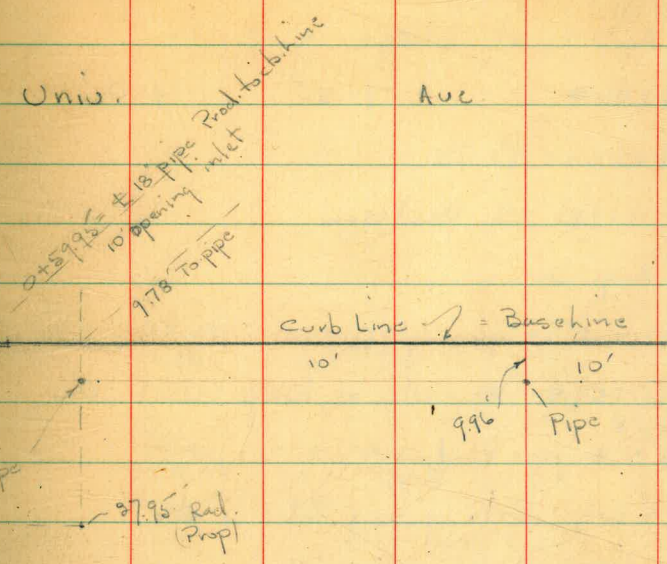 Univ. Ave
0+59.95 = ⅊ 18" pipe Prod. to cb. line
10' opening inlet
9.78' To pipe
Curb Line = Baseline
10' 10'
9.96' Pipe
37.95' Rad.
(Prop)